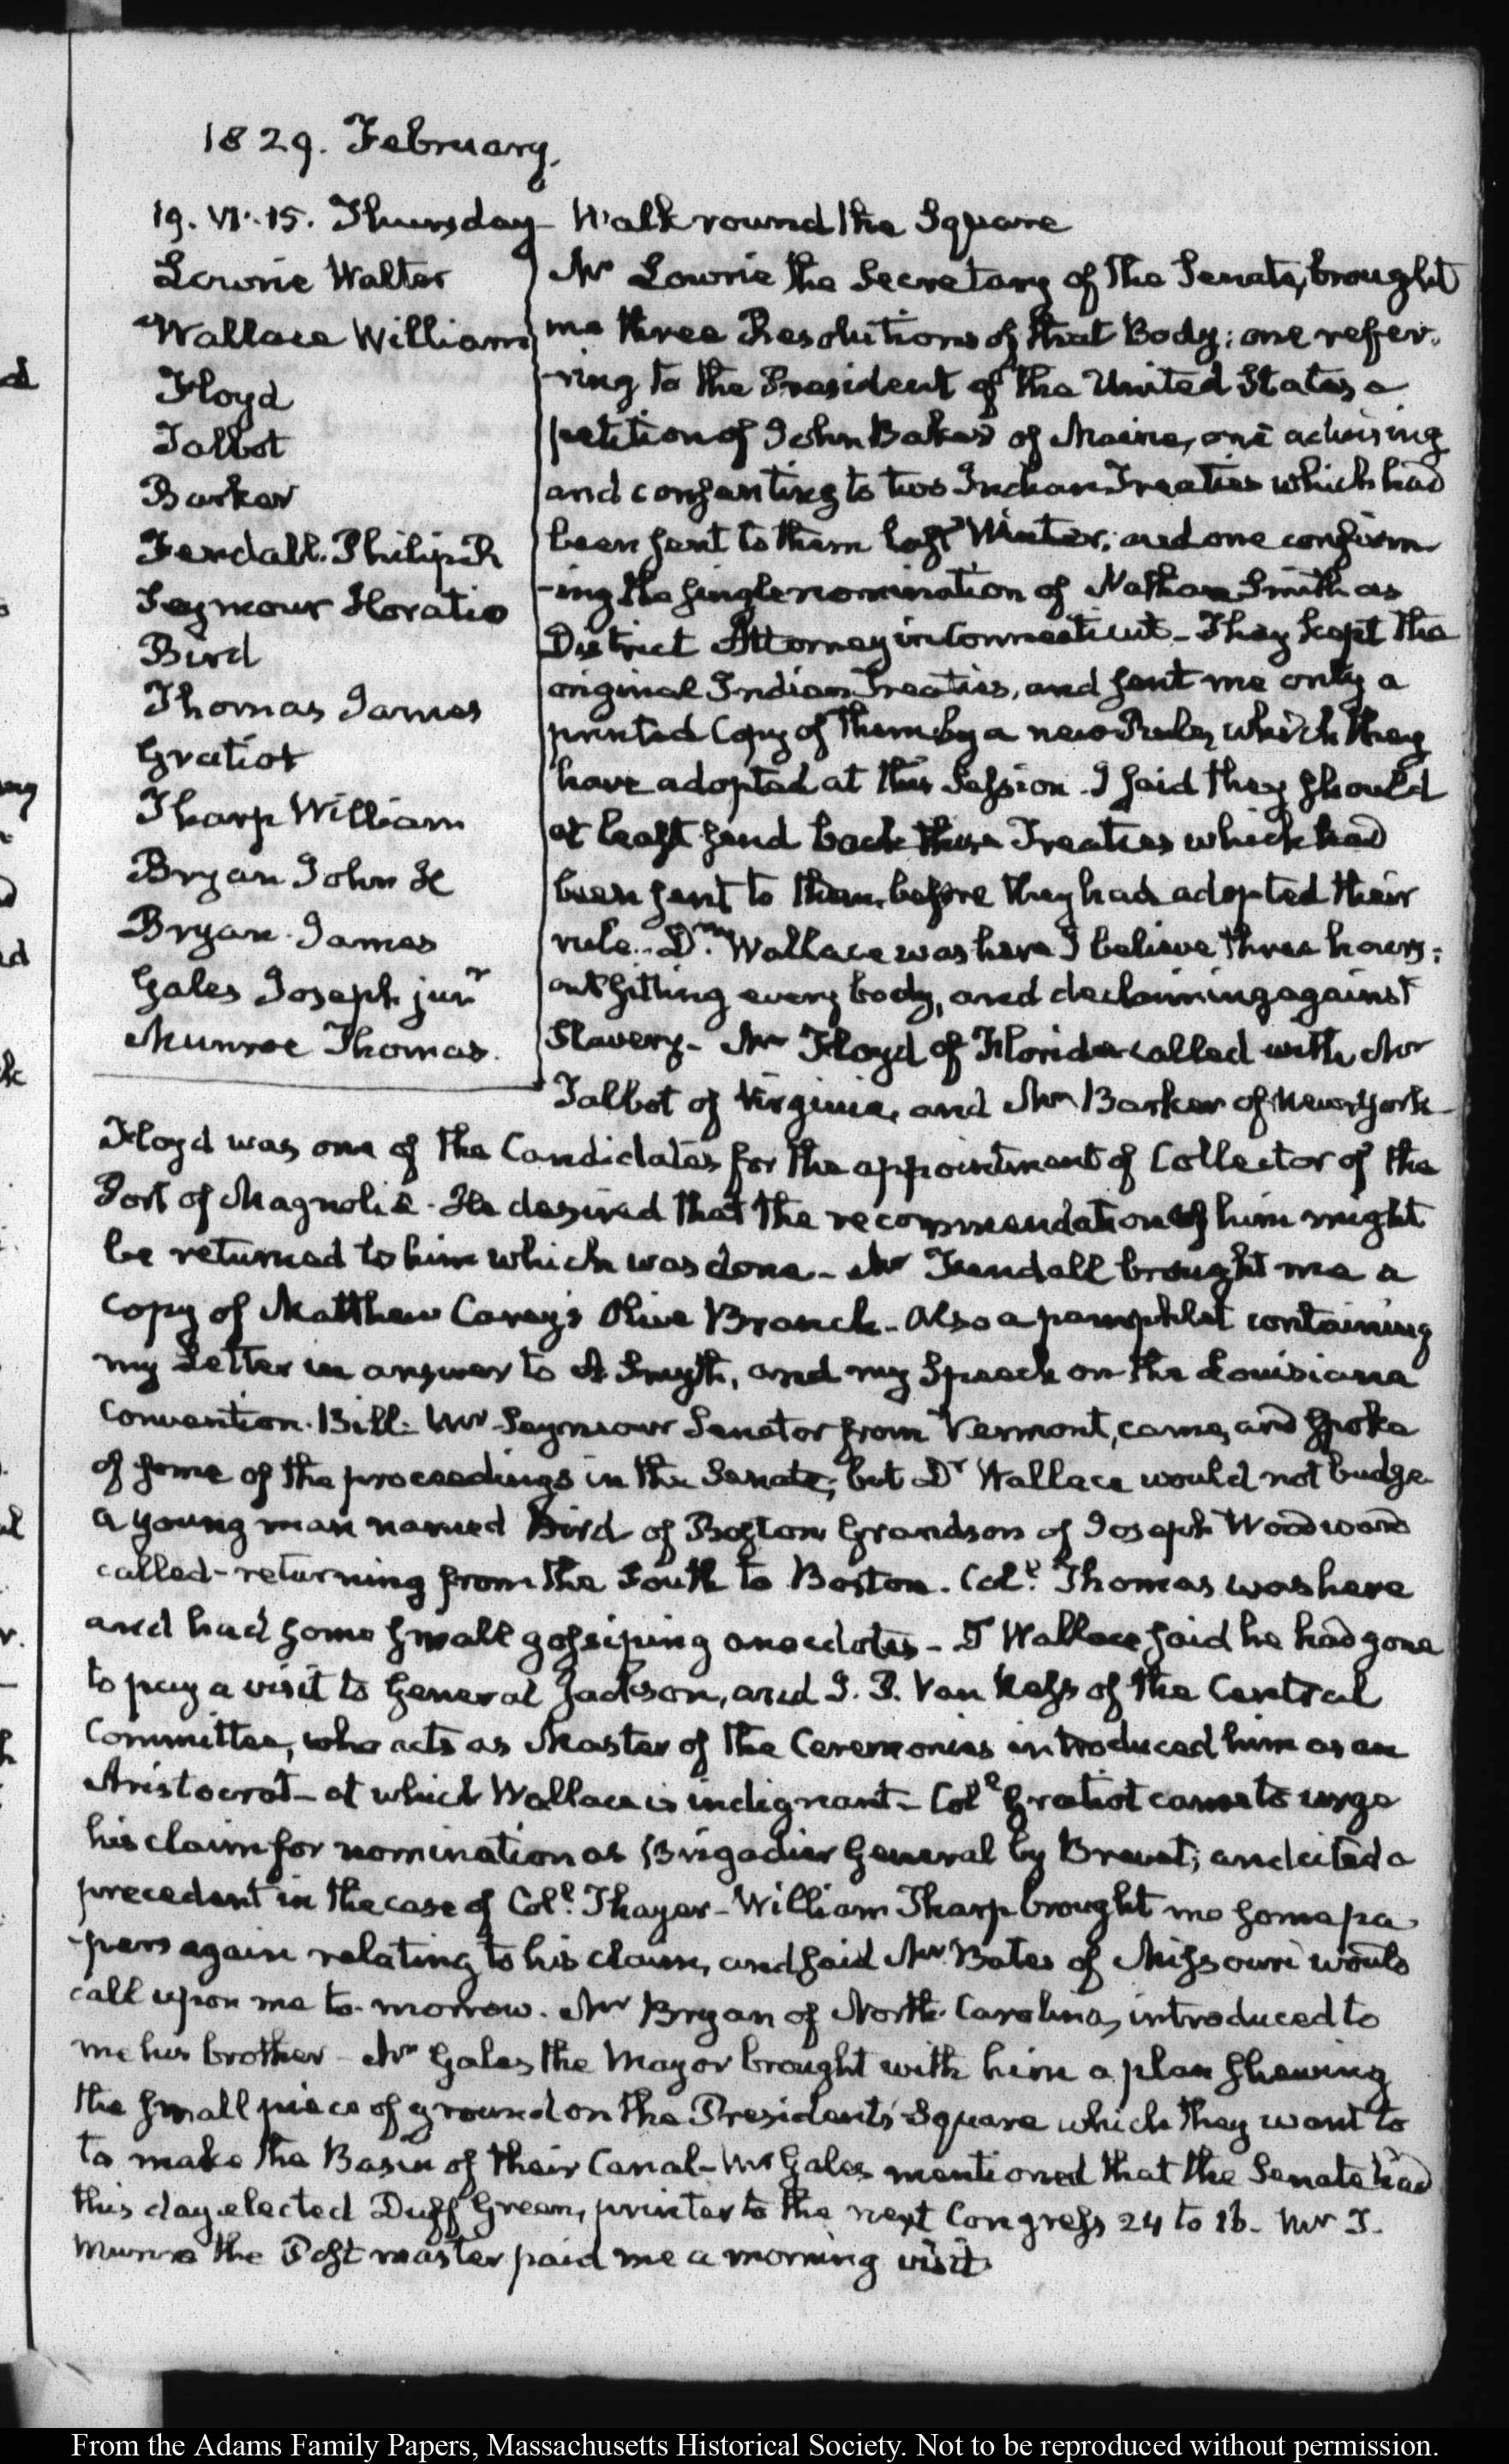 1829. February.
19. VI.15. Thursday - Walk round the Square
Lowrie Walter
Wallace William
Floyd
Talbot
Barker
Fendall. Philip R
Seymour Horatio
Bird
Thomas James
Gratiot
Tharp William
Bryan John H
Bryan. James
Gales Joseph junr
Munroe Thomas.
Mr Lowrie the Secretary of the Senate, brought
me three Resolutions of that Body; one refer-
-ring to the President of the United States a
petition of John Baker of Maine, one advising
and consenting to two Indian Treaties which had
been sent to them last Winter; and one confirm
-ing the single nomination of Nathan Smith as
District Attorney in Connecticut - They kept the
original Indian Treaties, and sent me only a
printed Copy of them by a new Rule, which they
have adopted at this Session. I said they should
at least send back these Treaties which had
been sent to them, before they had adopted their
rule. Dr. Wallace was here I believe three hours;
outsitting every body, and declaiming against
Slavery - Mr Floyd of Florida called with Mr
Talbot of Virginia, and Mr Barker of New-York -
Floyd was one of the Candidates for the appointment of Collector of the
Port of Magnolia. He desired that the recommendation of him might
be returned to him which was done - Mr Fendall brought me a
Copy of Matthew Carey's Olive Branch - Also a pamphlet containing
my Letter in answer to A Smyth, and my Speech on the Louisiana
Convention. Bill. Mr Seymour Senator from Vermont, came, and spoke
of some of the proceedings in the Senate; but Dr Wallace would not budge
A young man named Bird of Boston Grandson of Joseph Woodward
called - returning from the South to Boston. Coll. Thomas was here
and had some small gossiping anecdotes - D Wallace said he had gone
to pay a visit to General Jackson, and J. P. Van Ness of the Central
Committee, who acts as Master of the Ceremonies introduced him as an
Aristocrat - at which Wallace is indignant - Coll Gratiot came to urge
his claim for nomination as Brigadier General by Brevet; and cited a
precedent in the case of Coll. Thayer - William Tharp brought me some pa
-pers again relating to his claim, and said Mr Bates of Missouri would
call upon me to-morrow. Mr Bryan of North-Carolina, introduced to
me his brother - Mr Gales the Mayor brought with him a plan shewing
the small piece of ground on the Presidents Square which they want to
to make the Basin of their Canal - Mr Gales mentioned that the Senate had
this day elected Duff Green, printer to the next Congress 24 to 1b. Mr T.
Munroe the Post master paid me a morning visit.
From the Adams Family Papers, Massachusetts Historical Society. Not to be reproduced without permission.